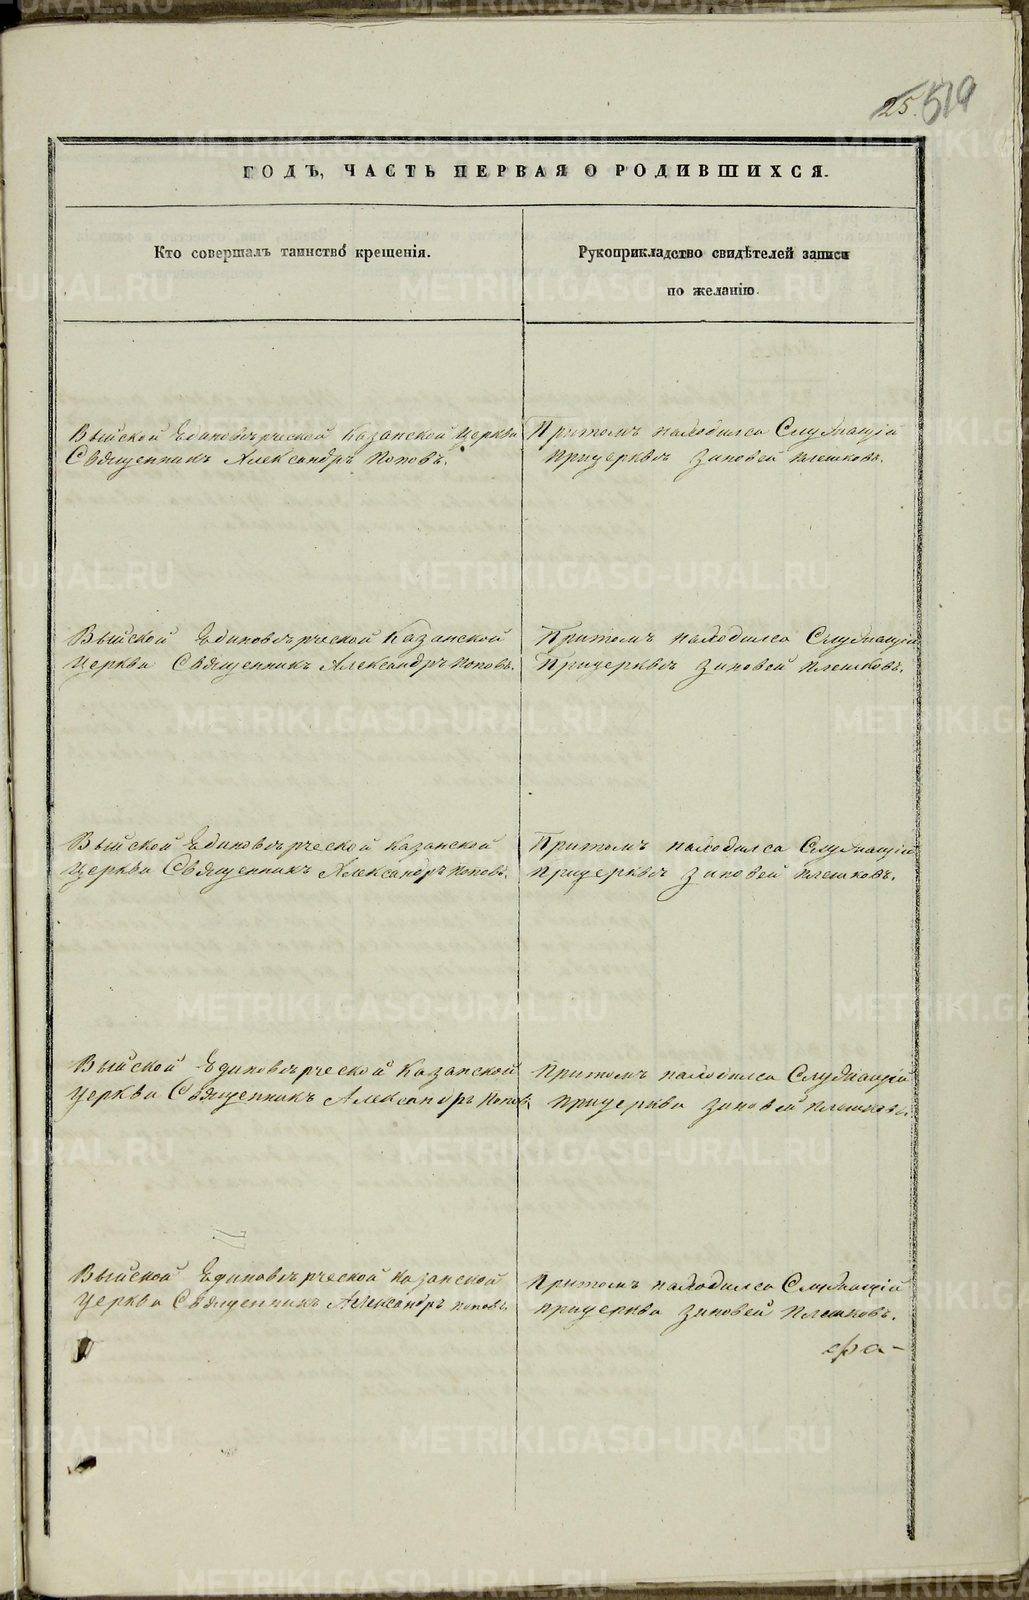 25. 519
ГОДЪ, ЧАСТЬ ПЕРВАЯ О РОДИВШИХСЯ.
Кто совершалъ таинство крещенія.
Рукоприкладство свидѣтелей записи
по желанію.
Выйской Единовѣрческой Казанской Церкви
Священникъ Александръ Поповъ.
Притомъ находился Служащій
Прицерквѣ Зиновей Плешковъ.
Выйской Единовѣрческой Казанской
Церкви Священникъ Александръ Поповъ.
Притомъ находился Служащій
Прицерквѣ Зиновей Плешковъ.
Выйской Единовѣрческой Казанской
Церкви Священникъ Александръ Поповъ.
Притомъ находился Служащій
Прицерквѣ Зиновей Плешковъ.
Выйской Единовѣрческой Казанской
Церкви Священникъ Александръ Поповъ.
Притомъ находился Служащій
Прицеркви Зиновей Плешковъ.
Выйской Единовѣрческой Казанской
Церкви Священникъ Александръ Поповъ
Притомъ находился Служащій
Прицеркви Зиновей Плешковъ.
METRIKI.GASO-URAL.RU